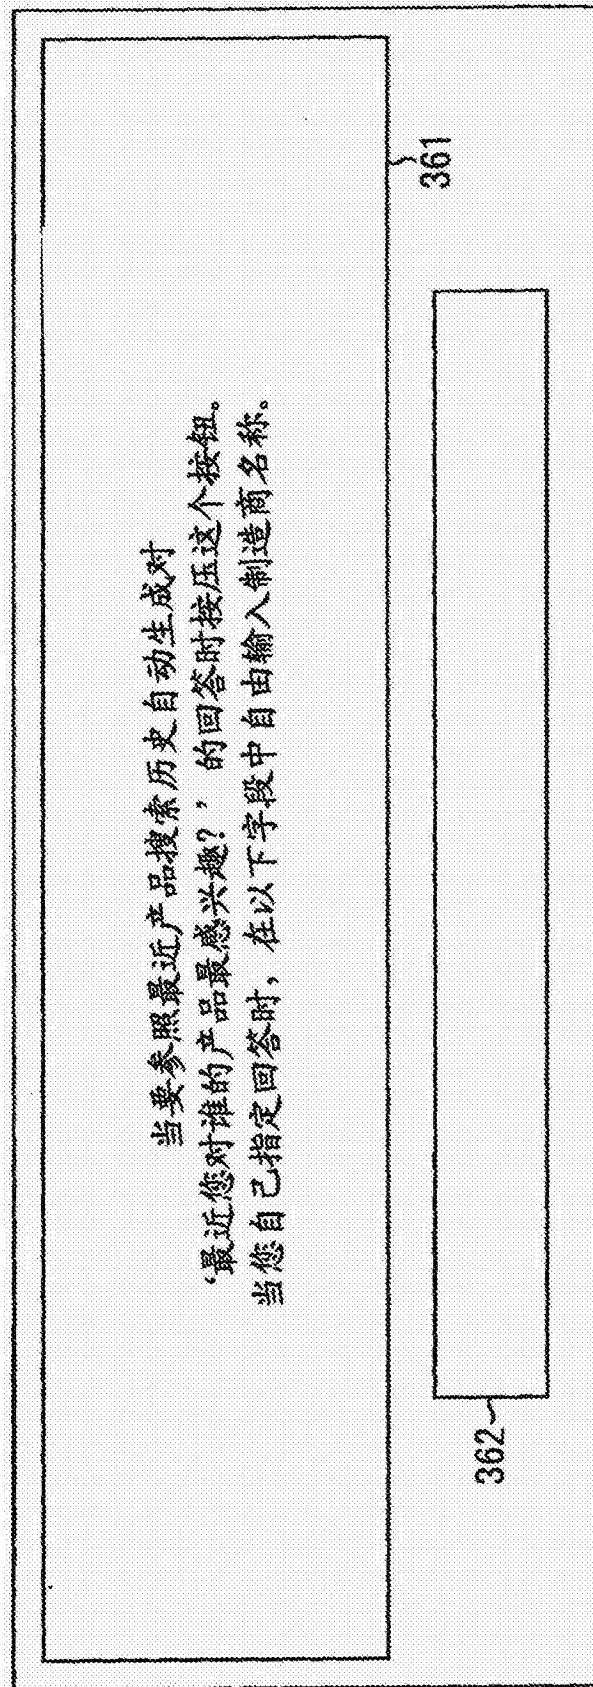 当要参照最近产品搜索历史自动生成对
‘最近您对谁的产品最感兴趣？’的回答时按压这个按钮。
当您自己指定回答时，在以下字段中自由输入制造商名称。
361
362